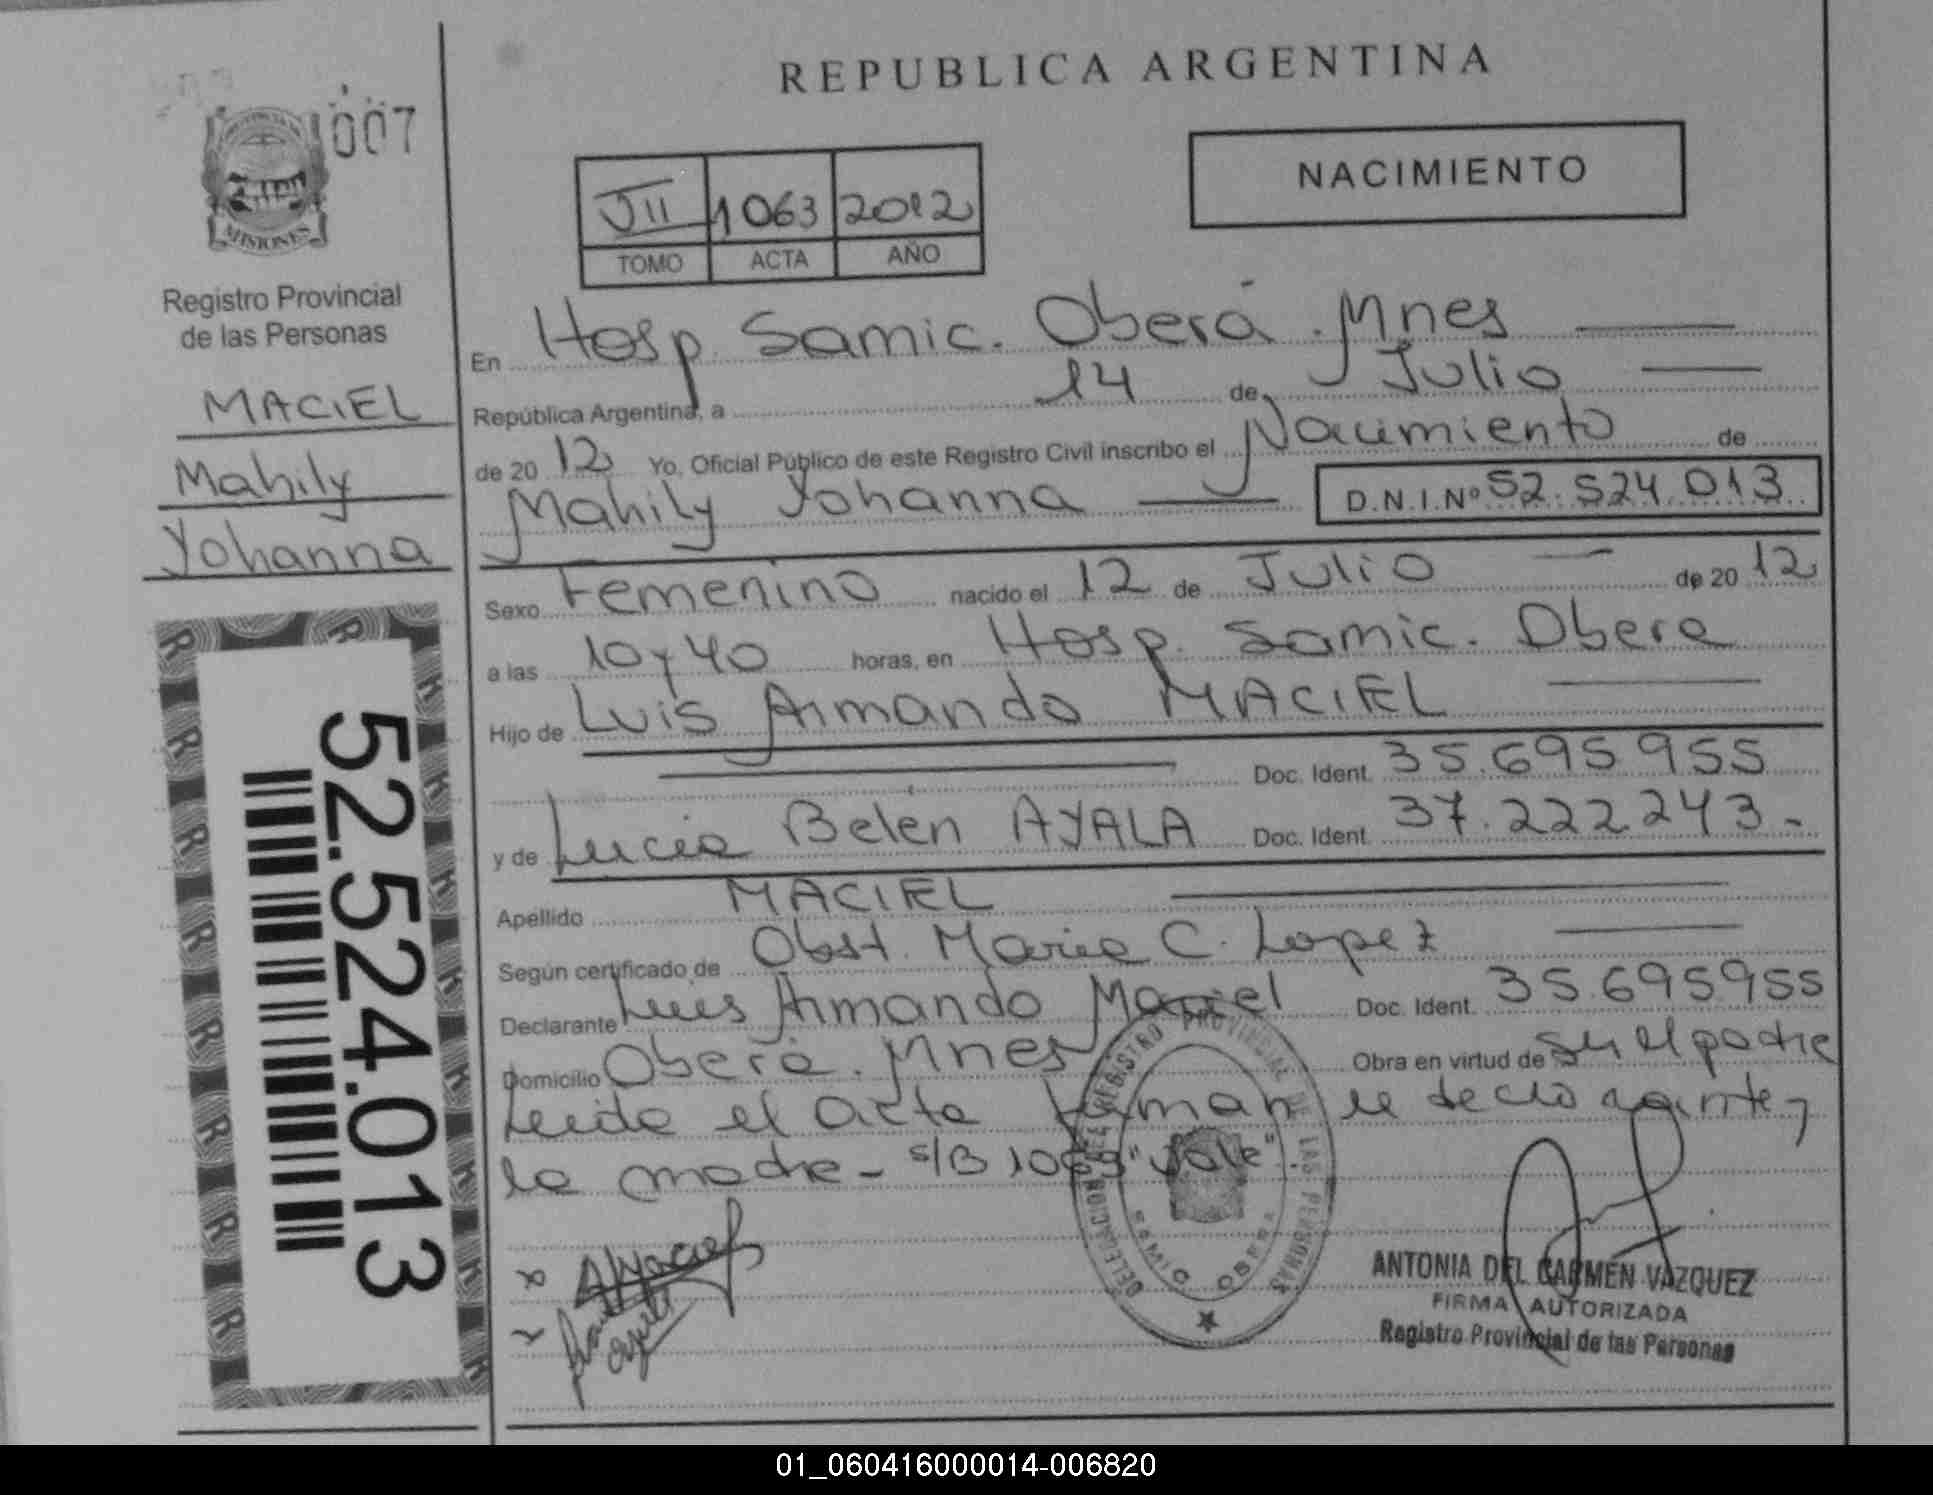 REPUBLICA ARGENTINA
007
MISIONES
Registro Provincial
de las Personas
MACIEL
Mahily
Yohanna
52.524.013
NACIMIENTO
VII 1063 2012
TOMO ACTA AÑO
En Hosp. Samic. Oberá. Mnes
República Argentina, a 14 de Julio
de 20 12 Yo, Oficial Público de este Registro Civil inscribo el Nacimiento de
Mahily Yohanna D.N.I.Nº 52.524.013
Sexo Femenino nacido el 12 de Julio de 20 12
a las 10 y 40 horas, en Hosp. Samic. Obera
Hijo de Luis Armando MACIEL
Doc. Ident. 35.695.955
y de Lucia Belén AYALA Doc. Ident. 37.222.243.-
Apellido MACIEL
Según certificado de Obst. Maria C. Lopez
Declarante Luis Armando Maciel Doc. Ident. 35.695.955
Domicilio Oberá. Mnes Obra en virtud de ser el padre
Leida el acta firman el declarante,
la madre - s/B 1063 "Vale".
DELEGACION DEL REGISTRO PROVINCIAL DE LAS PERSONAS
SAMIC OBERA
ANTONIA DEL CARMEN VAZQUEZ
FIRMA AUTORIZADA
Registro Provincial de las Personas
01_060416000014-006820